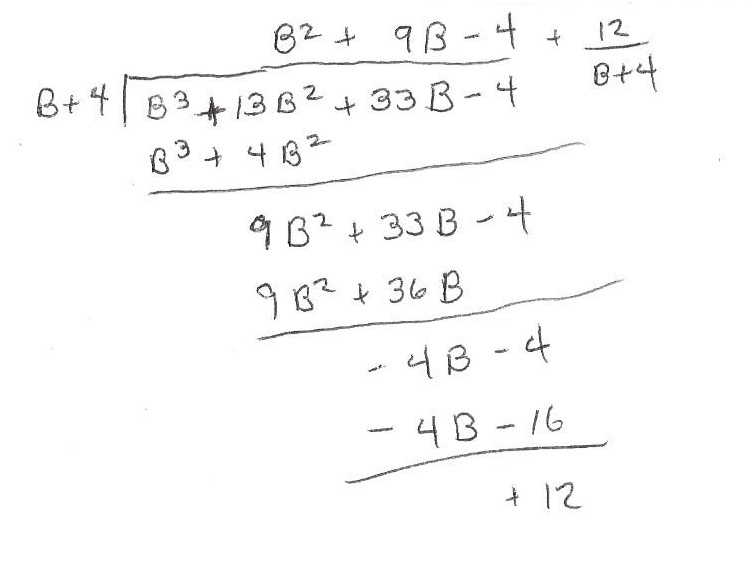 B² + 9B - 4 + 12/B+4
B+4 | B³ + 13B² + 33B - 4
B³ + 4B²
9B² + 33B - 4
9B² + 36B
- 4B - 4
- 4B - 16
+ 12